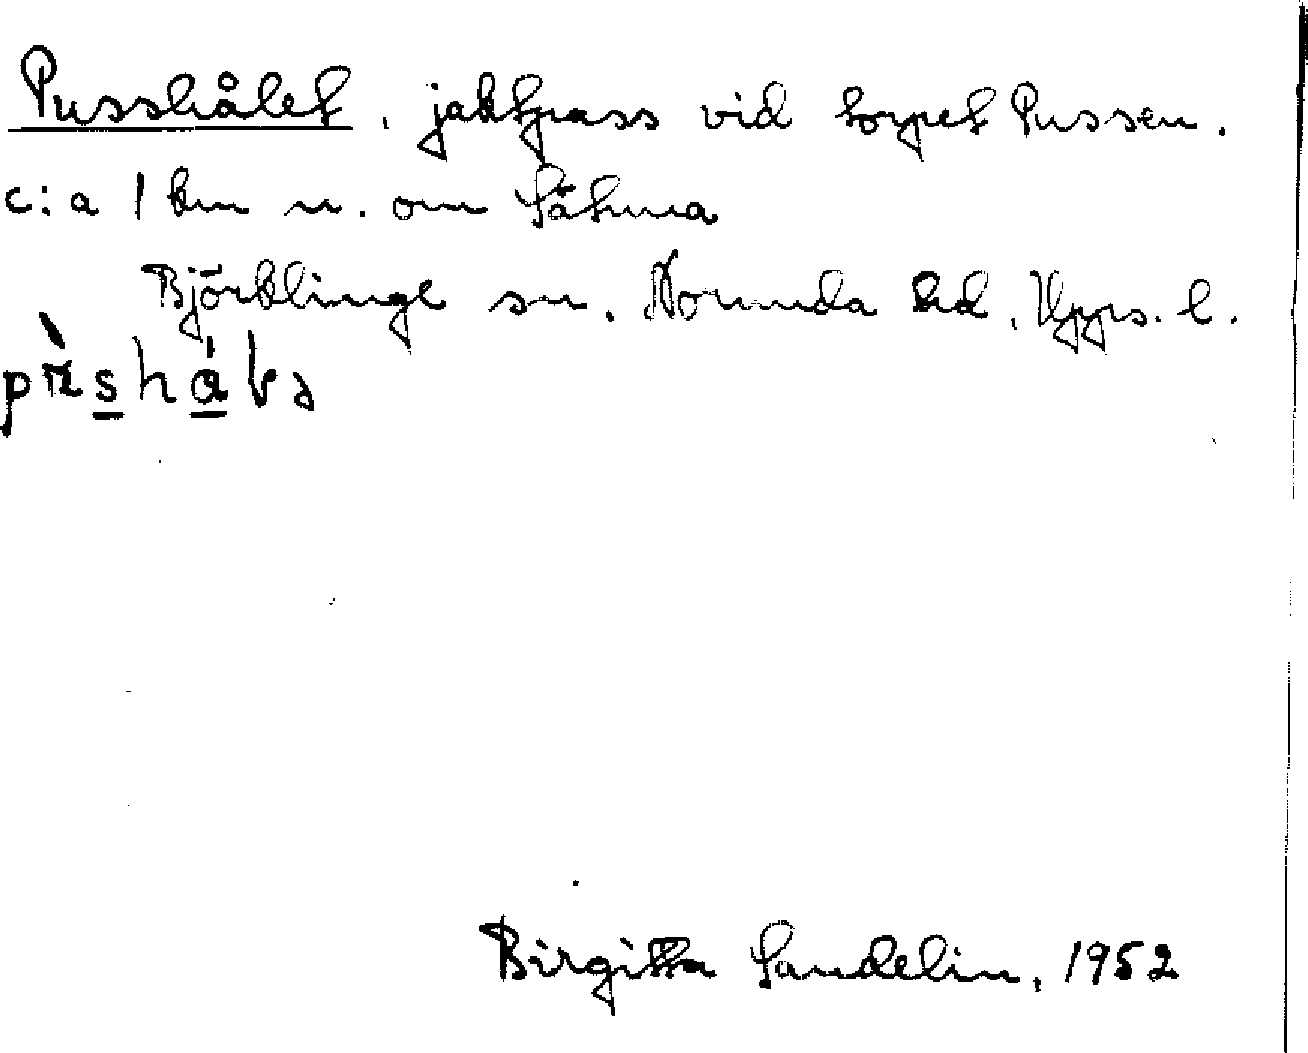 Pusshålet, jaktpass vid torpet Pussen.
c:a 1 km n. om Såtuna
Björklinge sn. Norunda hd, Upps. l.
Birgitta Sandelin, 1952